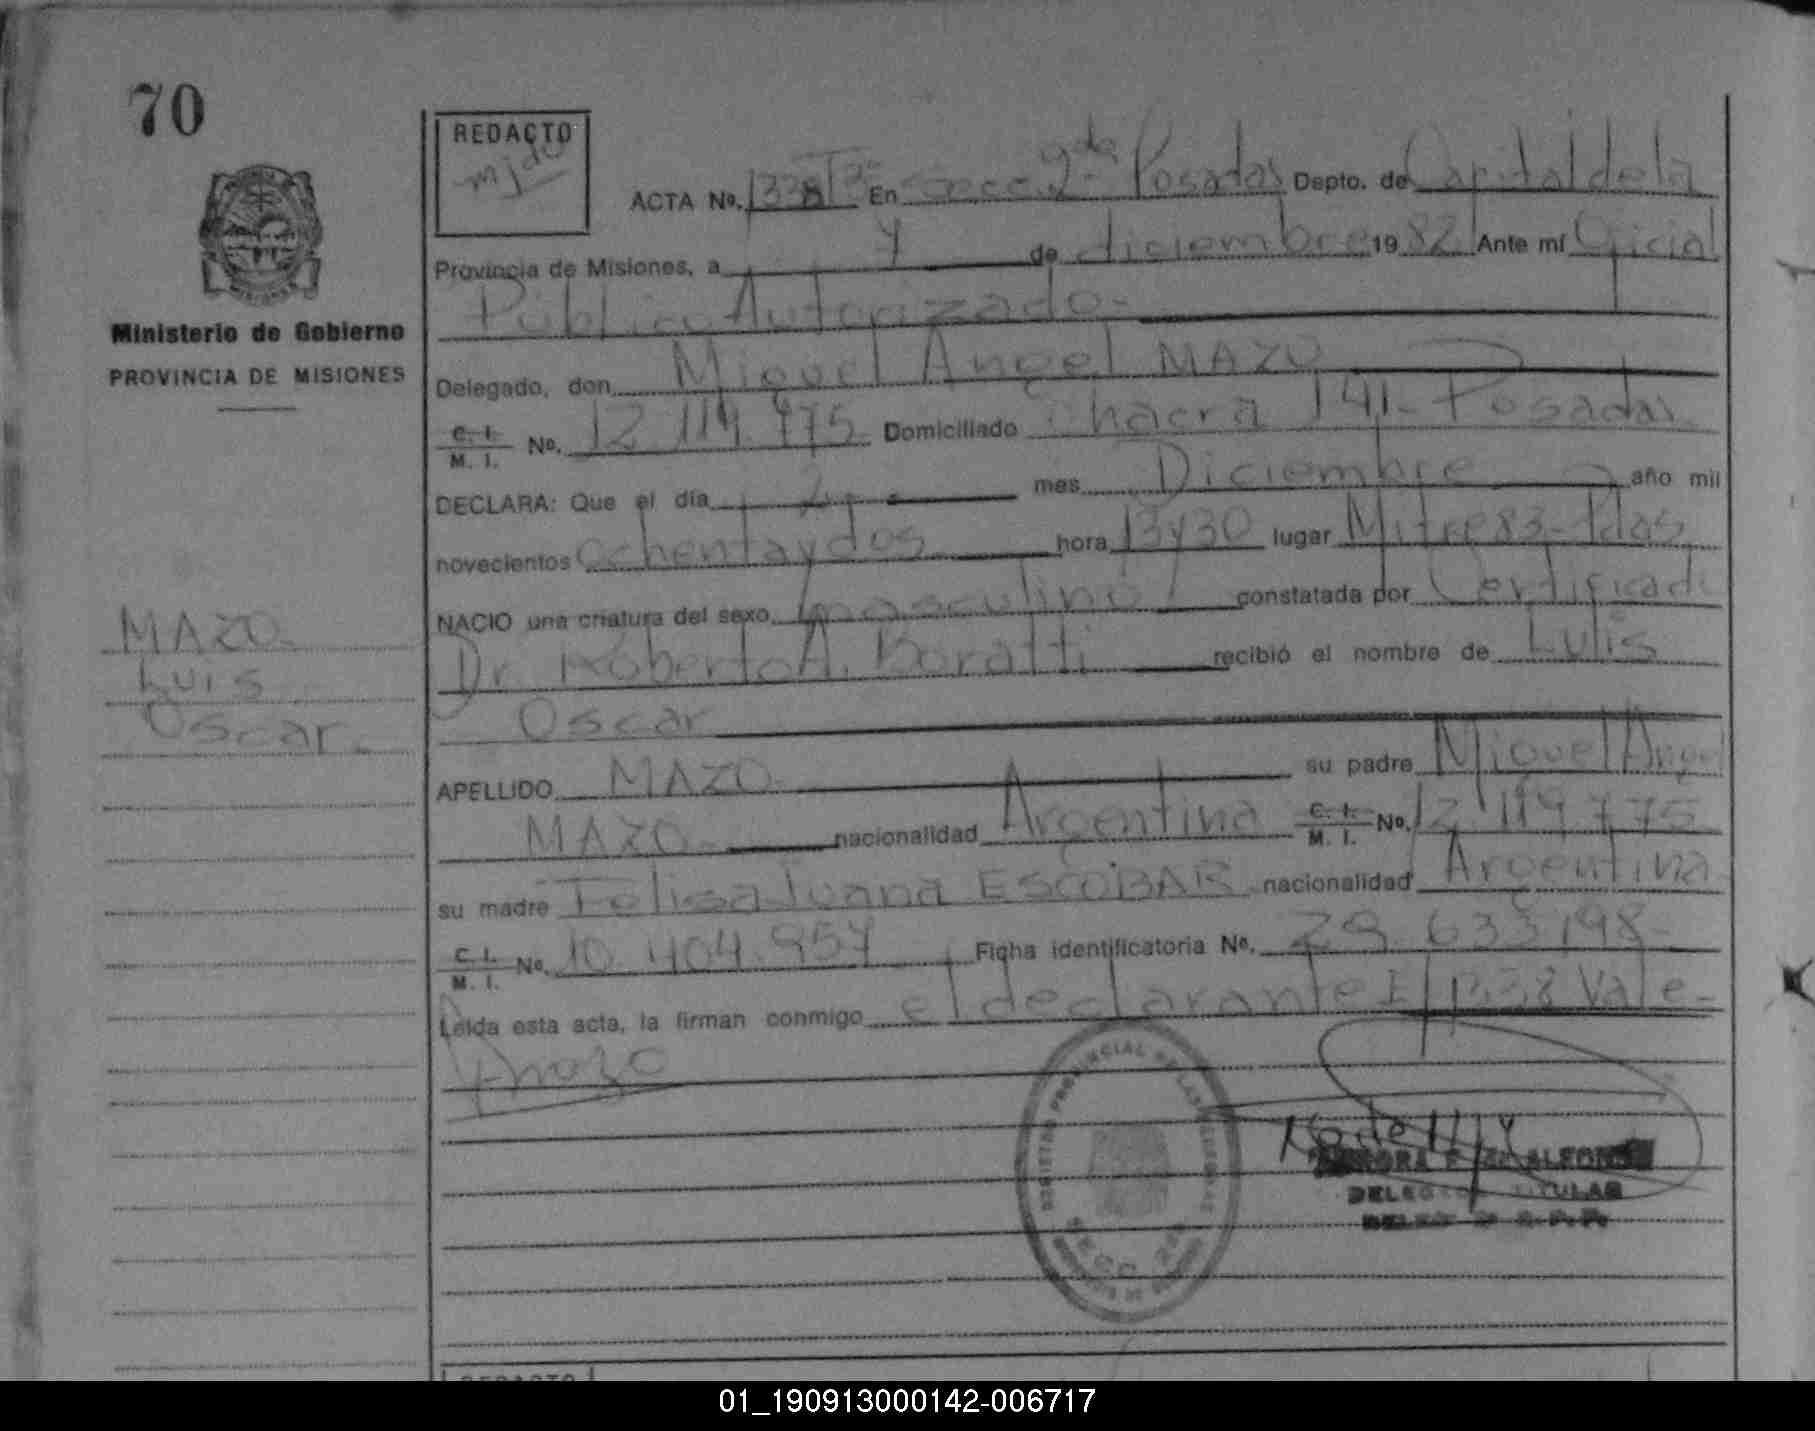 70
Ministerio de Gobierno
PROVINCIA DE MISIONES
MAZO
Luis
Oscar
REDACTO
mjdu
ACTA Nº. 1338 Tº 3º En Secc 2da Posadas Depto. de Capital de la
Provincia de Misiones, a 4 de diciembre 1982 Ante mí Oficial
Público Autorizado
Delegado, don Miguel Angel MAZO
C. I. M. I. Nº. 12.119.775 Domiciliado Chacra 141 - Posadas
DECLARA: Que el día 2 mes Diciembre año mil
novecientos Ochenta y dos hora 13 y 30 lugar Mitre 83 - Pdas
NACIO una criatura del sexo masculino constatada por Certificado
Dr. Roberto A. Boratti recibió el nombre de Luis
Oscar
APELLIDO MAZO su padre Miguel Angel
MAZO nacionalidad Argentina C. I. M. I. Nº. 12.119.775
su madre Felisa Juana ESCOBAR nacionalidad Argentina
C. I. M. I. Nº. 10.404.957 Ficha identificatoria Nº. 29.633.198
Leída esta acta, la firman conmigo el declarante E/ 1338 Vale-
Mazo
REGISTRO PROVINCIAL DE LAS PERSONAS
SECC. 2da
DELEGADO TITULAR
REDACTO
01_190913000142-006717